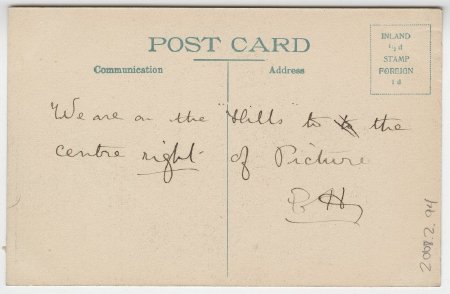 POST CARD
Communication
Address
INLAND
½d
STAMP
FOREIGN
1d
We are on the "Hills" to the
centre right of Picture
P.H.